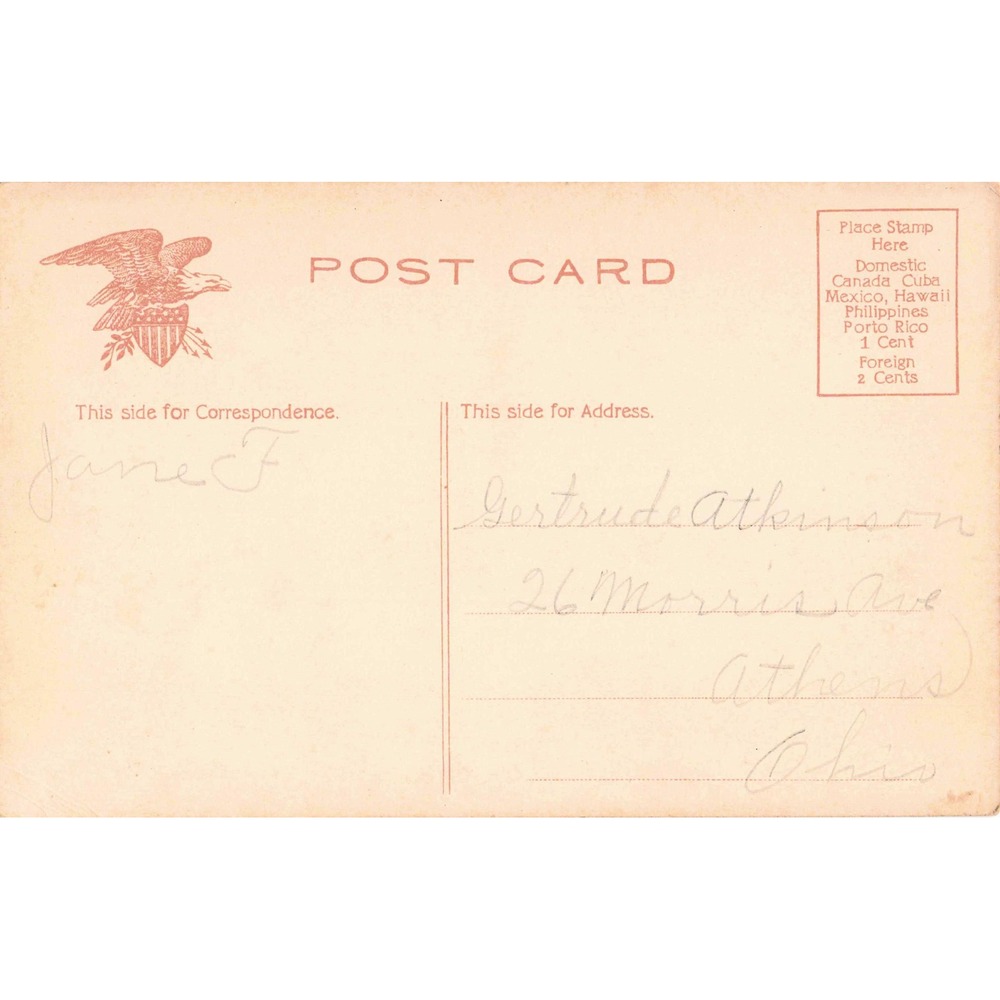 POST CARD
Place Stamp
Here
Domestic
Canada Cuba
Mexico, Hawaii
Philippines
Porto Rico
1 Cent
Foreign
2 Cents
This side for Correspondence.
Jane F
This side for Address.
Gertrude Atkinson
26 Morris Ave
Athens
Ohio